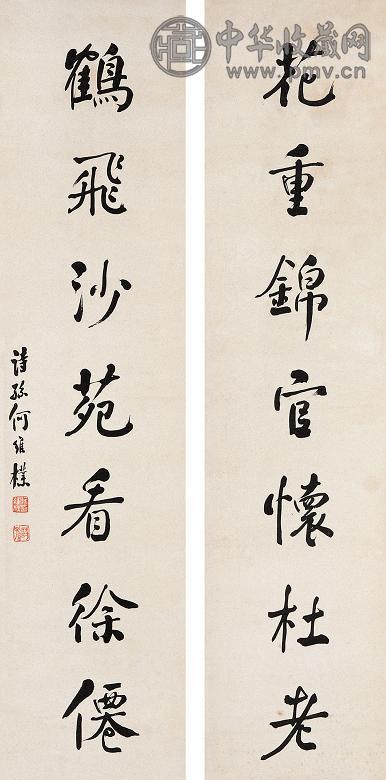 花重錦官懷杜老
鶴飛沙苑看徐僊
詩孫何維樸
中华收藏网
www.pmv.cn